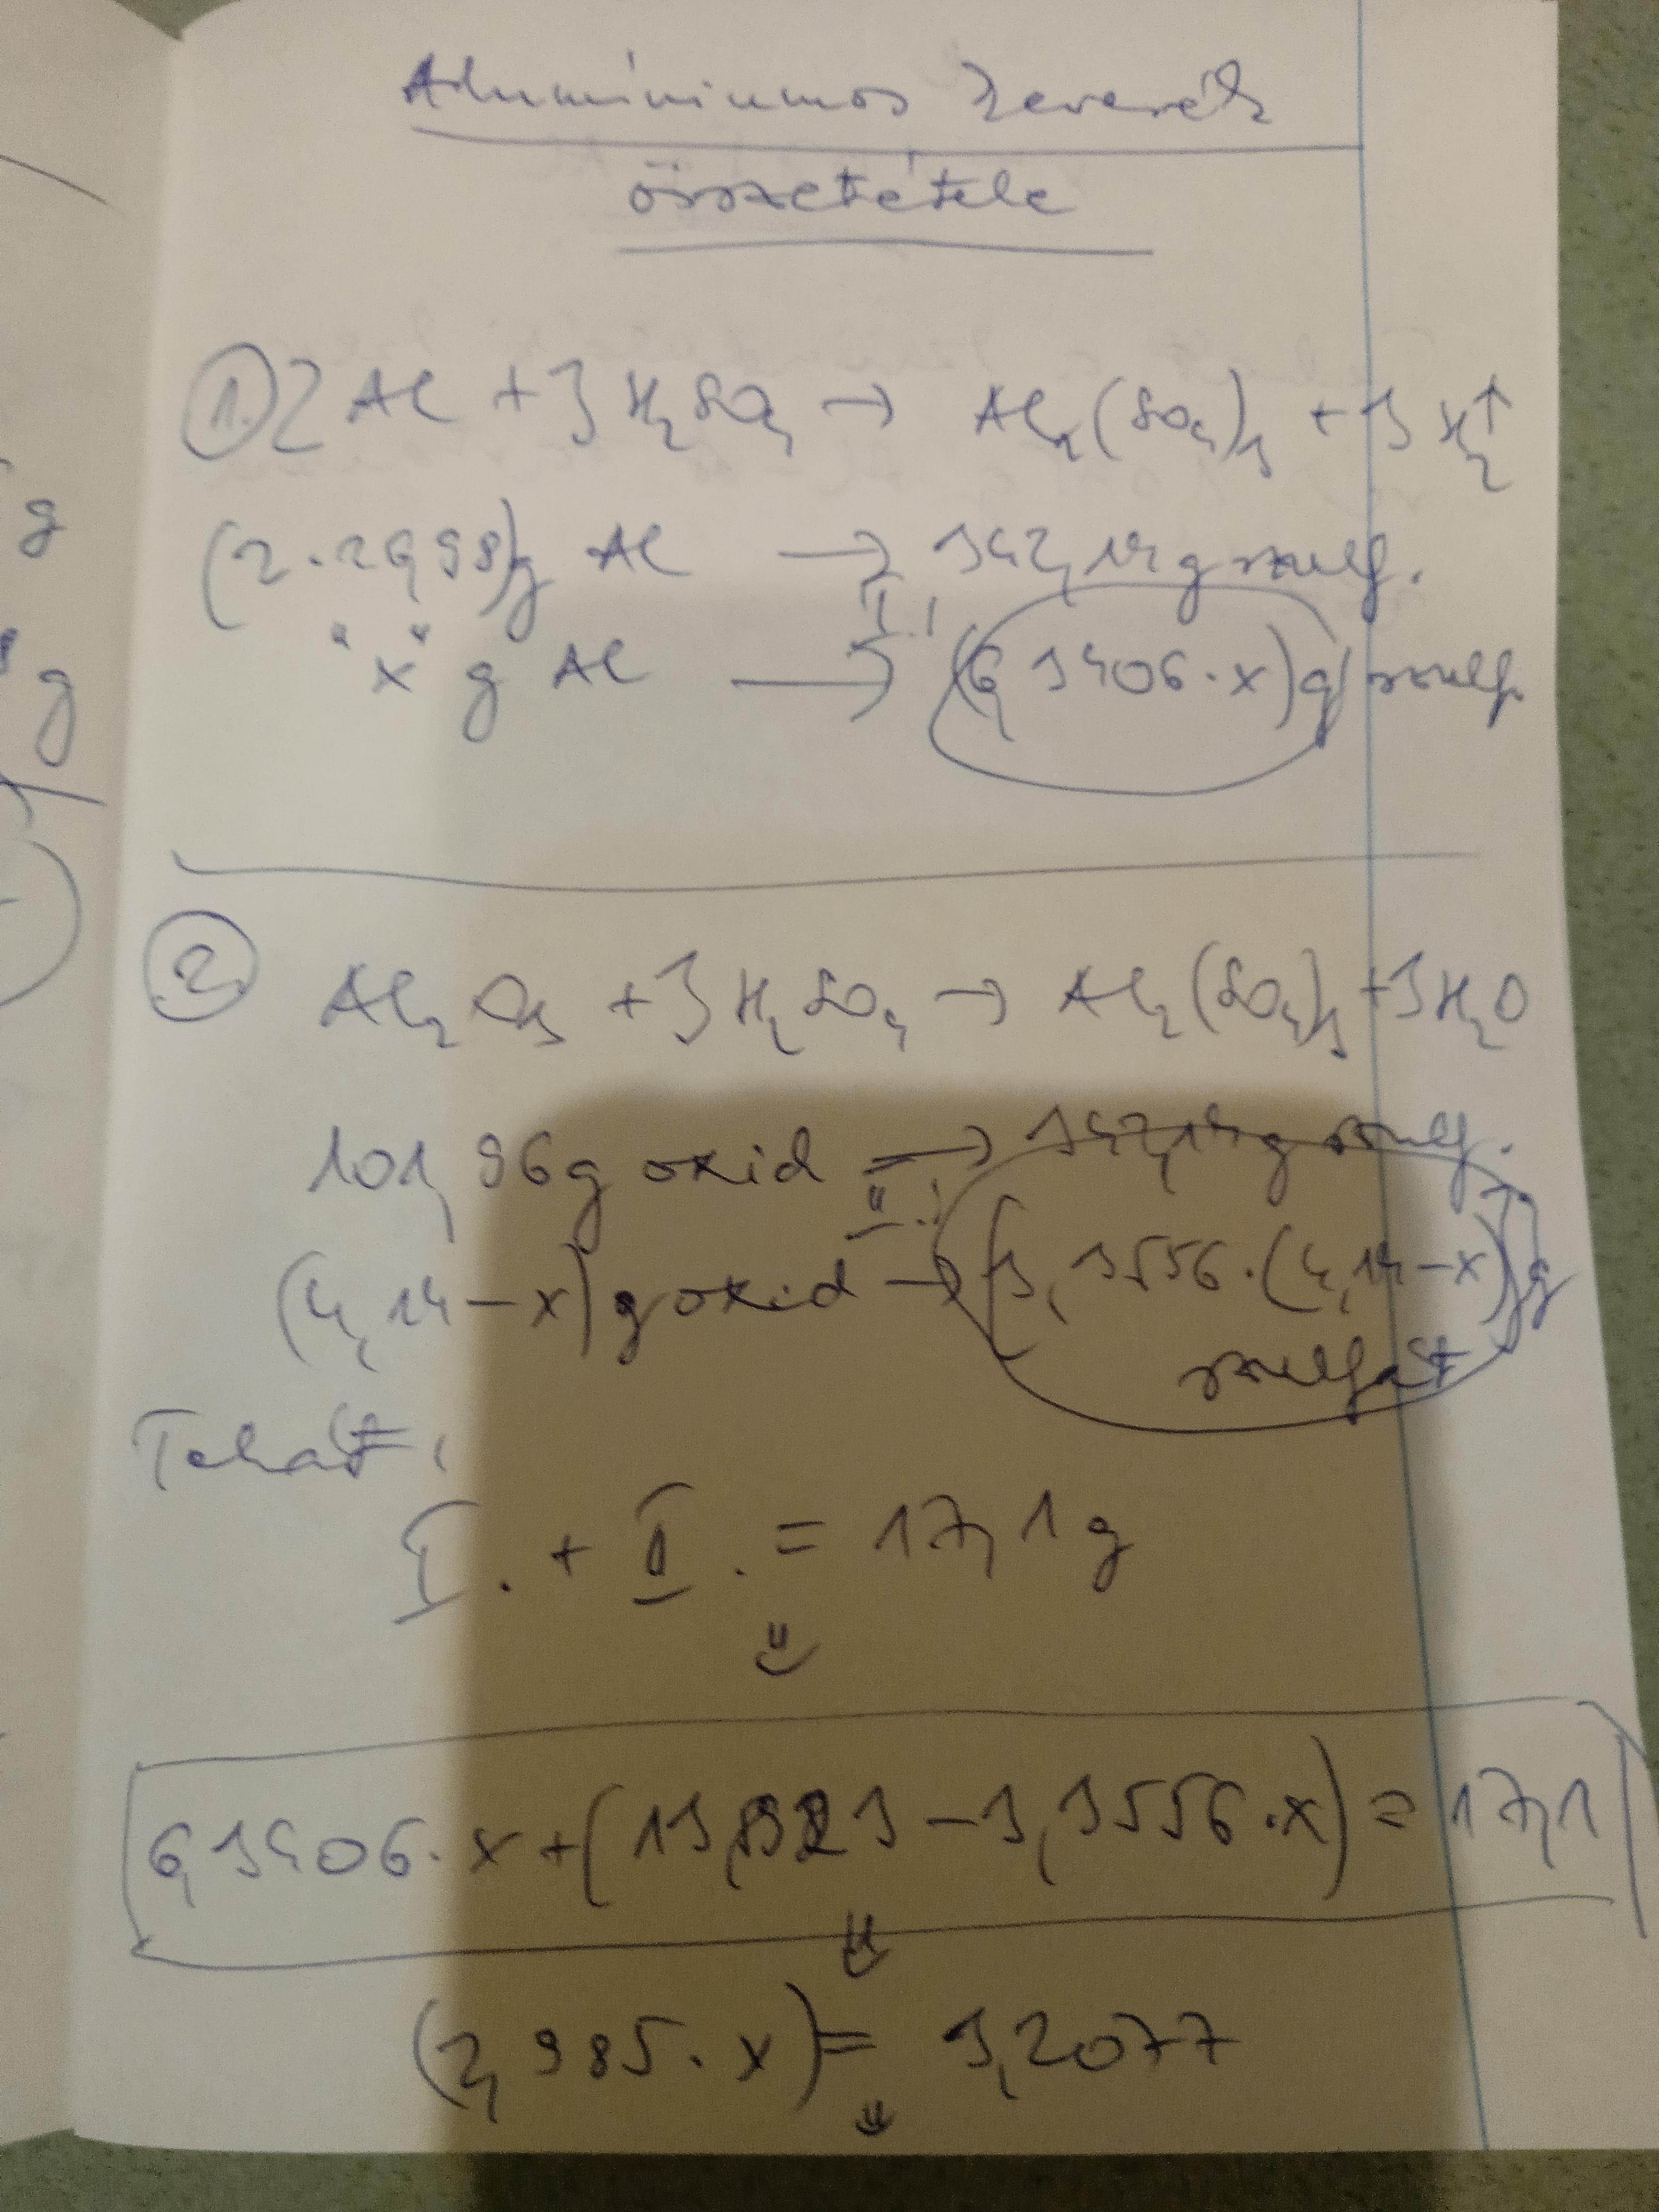 Alumíniumos keverék
összetétele
1. 2 Al + 3 H₂SO₄ → Al₂(SO₄)₃ + 3 H₂↑
(2·26,98)g Al → 342,14 g szulf.
"x" g Al → I.: (6,3406·x)g szulf.
2. Al₂O₃ + 3 H₂SO₄ → Al₂(SO₄)₃ + 3 H₂O
101,96g oxid → 342,14g szulf.
(4,14-x)g oxid → II.: [3,3556·(4,14-x)]g
szulfát
Tehát:
I. + II. = 17,1 g
⇓
6,3406·x + (13,8923 - 3,3556·x) = 17,1
⇓
(2,985·x) = 3,2077
⇓
g
g